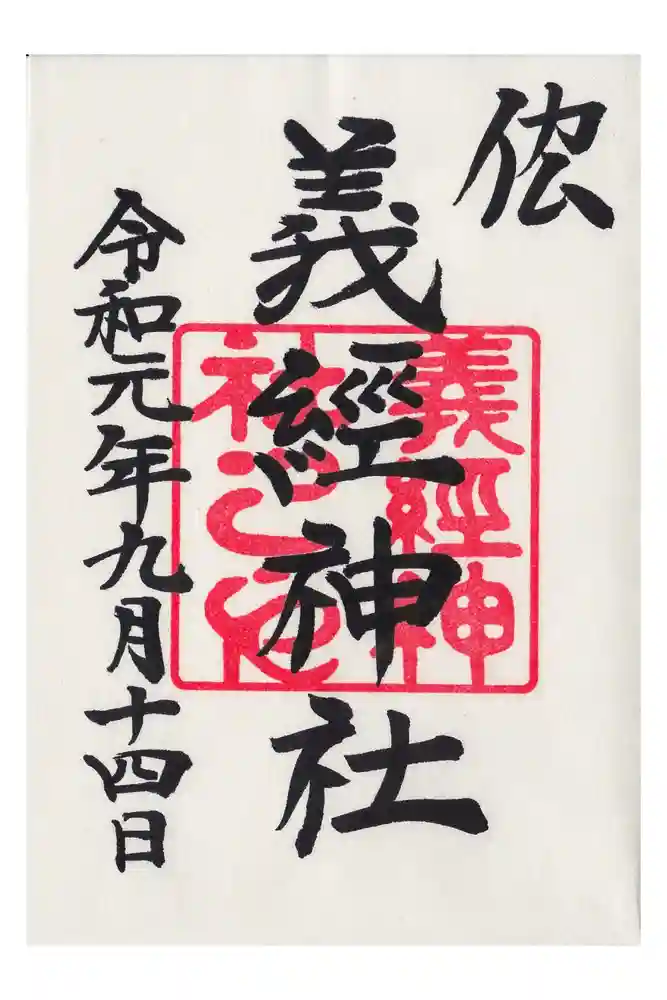 義經神社
義經神
社之印
令和元年九月十四日